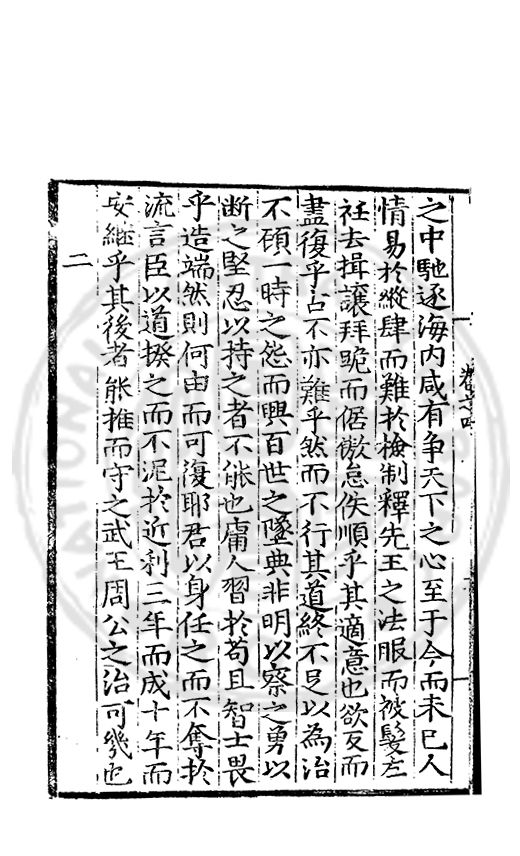 之中馳逐海内咸有爭天下之心至于今而未已人
情易於縱肆而難於檢制釋先王之法服而被髮左
衽去揖讓拜跪而倨傲怠佚順乎其適意也欲反而
盡復乎古不亦難乎然而不行其道終不足以為治
不顧一時之怨而興百世之墜典非明以察之勇以
断之堅忍以持之者不能也庸人習於苟且智士畏
乎造端然則何由而可復耶君以身任之而不奪於
流言臣以道揆之而不泥於近利三年而成十年而
安繼乎其後者能推而守之武王周公之治可幾也
二